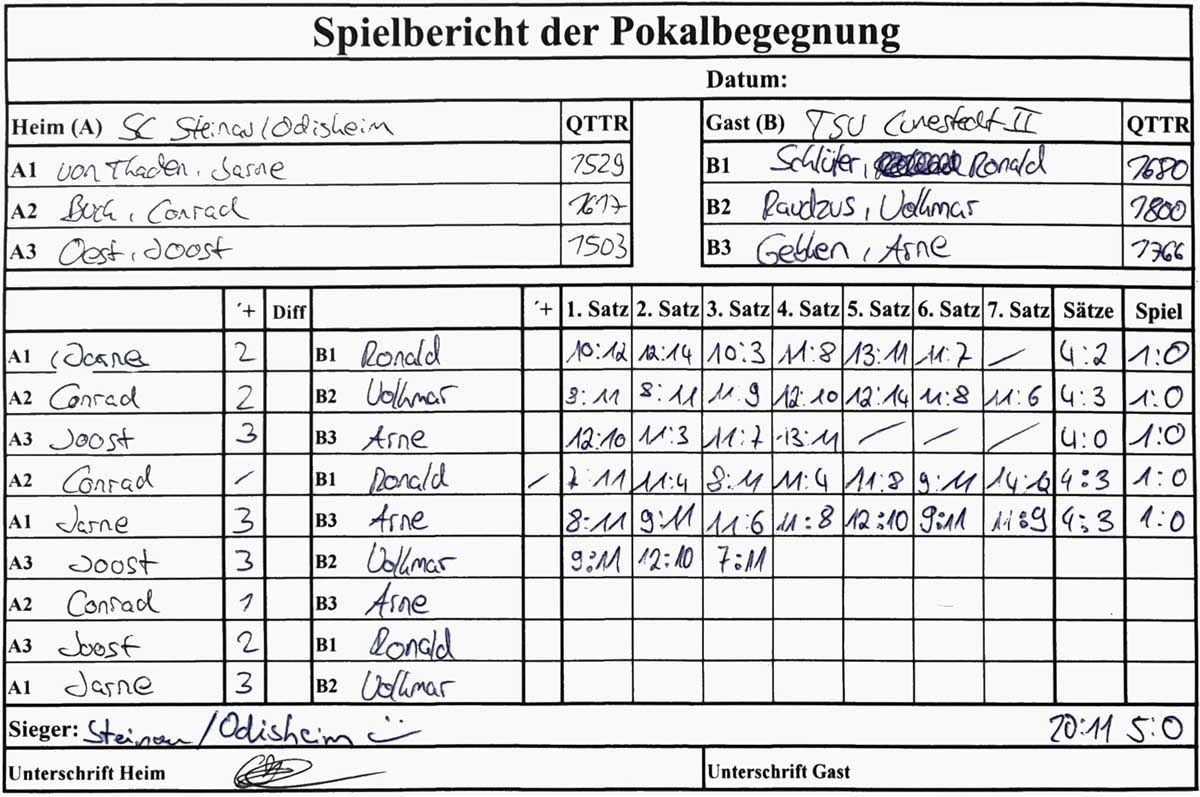 Spielbericht der Pokalbegegnung
Datum:
Heim (A) SC Steinau/Odisheim QTTR Gast (B) TSV II QTTR
A1 von Thaden, Jarne 1529 B1 Schlüter, Ronald 1680
A2 Buck, Conrad 1617 B2 Raudzus, Volkmar 1800
A3 Oest, Joost 1503 B3 Arne 1766
'+ Diff '+ 1. Satz 2. Satz 3. Satz 4. Satz 5. Satz 6. Satz 7. Satz Sätze Spiel
A1 Jarne 2 B1 Ronald 10:12 12:14 10:3 11:8 13:11 11:7 / 4:2 1:0
A2 Conrad 2 B2 Volkmar 9:11 8:11 11:9 12:10 12:14 11:8 11:6 4:3 1:0
A3 Joost 3 B3 Arne 12:10 11:3 11:7 13:11 / / / 4:0 1:0
A2 Conrad / B1 Ronald / 7:11 11:4 8:11 11:4 11:8 9:11 4:3 1:0
A1 Jarne 3 B3 Arne 8:11 9:11 11:6 11:8 12:10 9:11 11:9 4:3 1:0
A3 Joost 3 B2 Volkmar 9:11 12:10 7:11
A2 Conrad 1 B3 Arne
A3 Joost 2 B1 Ronald
A1 Jarne 3 B2 Volkmar
Sieger: Steinau/Odisheim 20:11 5:0
Unterschrift Heim Unterschrift Gast